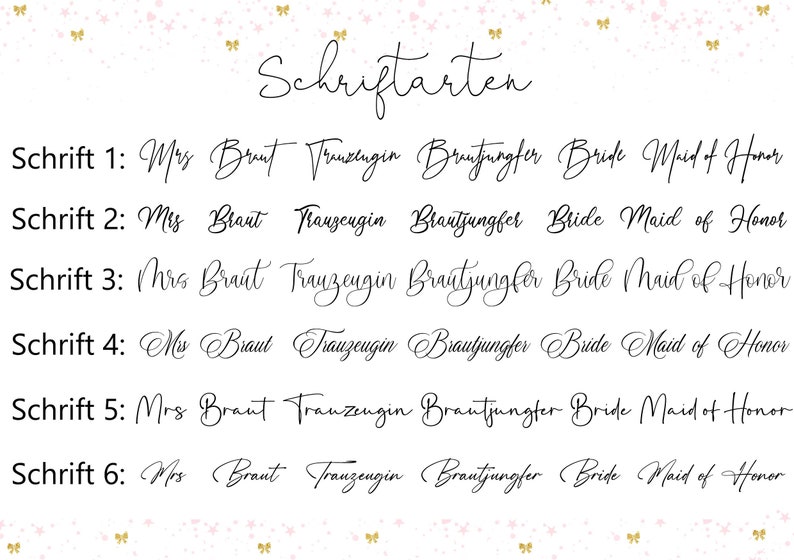 Schriftarten
Schrift 1: Mrs Braut Trauzeugin Brautjungfer Bride Maid of Honor
Schrift 2: Mrs Braut Trauzeugin Brautjungfer Bride Maid of Honor
Schrift 3: Mrs Braut Trauzeugin Brautjungfer Bride Maid of Honor
Schrift 4: Mrs Braut Trauzeugin Brautjungfer Bride Maid of Honor
Schrift 5: Mrs Braut Trauzeugin Brautjungfer Bride Maid of Honor
Schrift 6: Mrs Braut Trauzeugin Brautjungfer Bride Maid of Honor